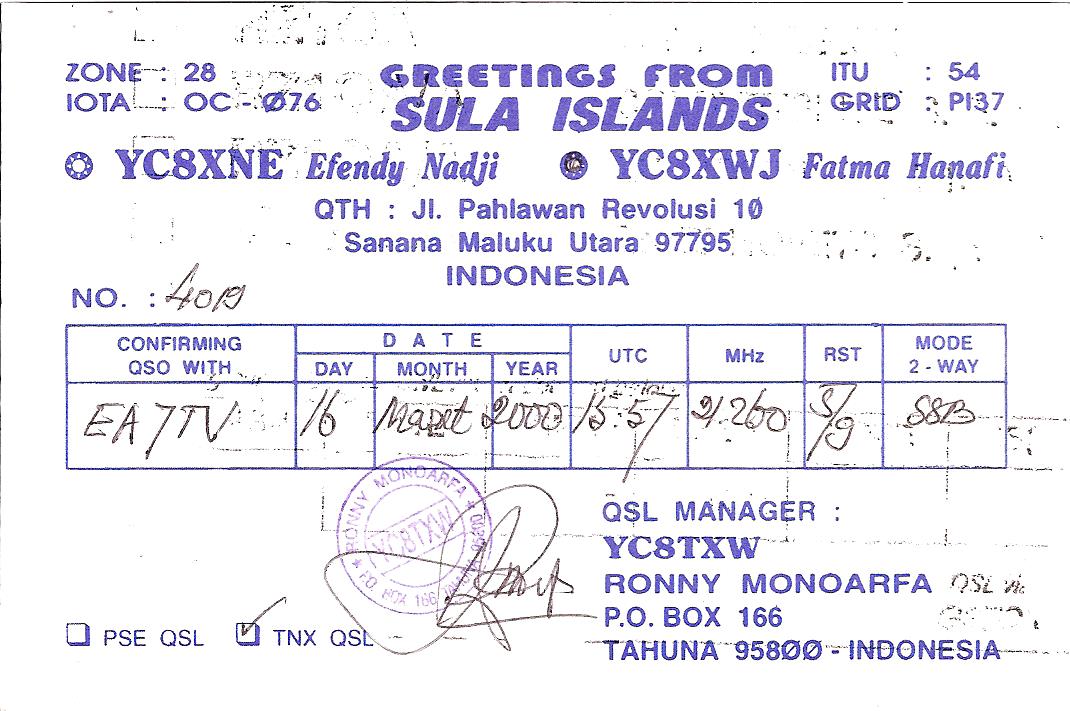 ZONE : 28
IOTA : OC - Ø76
GREETINGS FROM
SULA ISLANDS
ITU : 54
GRID : PI37
YC8XNE Efendy Nadji YC8XWJ Fatma Hanafi
QTH : Jl. Pahlawan Revolusi 1Ø
Sanana Maluku Utara 97795
INDONESIA
NO. : 4019
CONFIRMING QSO WITH
DATE
DAY MONTH YEAR
UTC
MHz
RST
MODE 2 - WAY
EA7TV 16 Maret 2000 15:57 21.260 5/9 SSB
RONNY MONOARFA
YC8TXW
P.O. BOX 166 TAHUNA
QSL MANAGER :
YC8TXW
RONNY MONOARFA
P.O. BOX 166
TAHUNA 958ØØ - INDONESIA
PSE QSL TNX QSL